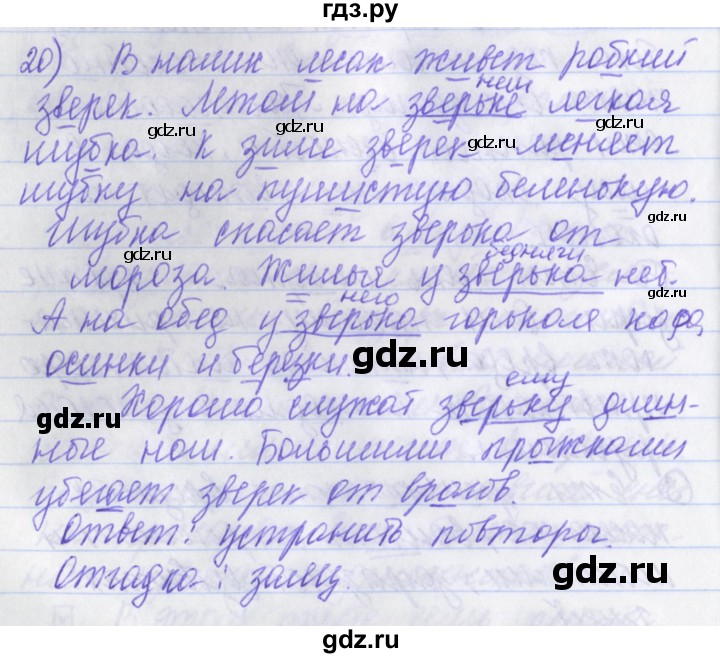 гдз.ру
20) В наших лесах живет робкий
нем
зверек. Летом на зверьке легкая
gdz.ru gdz.ru gdz.ru
шубка. К зиме зверек меняет
шубку на пушистую беленькую.
gdz.ru
Шубка спасает зверька от
gdz.ru
бедняги
мороза. Жилья у зверька нет.
gdz.ru
него
А на обед у зверька горькая кора,
осинки и березки. gdz.ru
ему
Хорошо служат зверьку длин-
gdz.ru
ные ноги. Большими прыжками
убегает зверек от врагов.
Ответ: устранить повторы.
gdz.ru
Отгадка: заяц.
gdz.ru